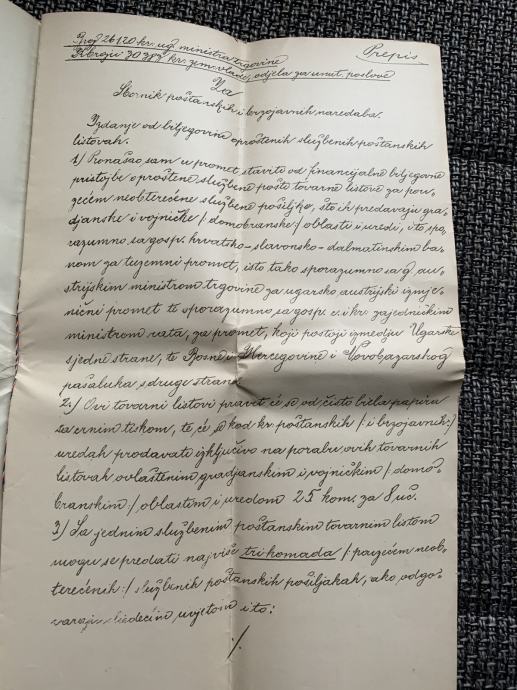 Broj 26120 kr. ug. ministra trgovine
K broju 30383 kr. zem. vlade, odjela za unut. poslove
Prepis
Za
Sbornik poštanskih i brzojavnih naredaba.
Izdanje od biljegovina oproštenih službenih poštanskih
listovah.
1./ Pronašao sam u promet staviti od financijalne biljegovne
pristojbe oproštene službene pošto tovarne listove za pou-
zećem neobterećene službene pošiljke, što ih predavaju gra-
djanske i vojničke /: domobranske :/ oblasti i uredi, i to spo-
razumno sa gosp. hrvatsko-slavonsko-dalmatinskim ba-
nom za tuzemni promet, isto tako sporazumno sa g. au-
strijskim ministrom trgovine za ugarsko austrijski izmje-
nični promet te sporazumno sa gosp. c. i kr. zajedničkim
ministrom rata, za promet, koji postoji izmedju Ugarske
s jedne strane, te Bosne i Hercegovine i Novobazarskog
pašaluka s druge strane.
2./ Ovi tovarni listovi pravit će se od čisto biela papira
sa crnim tiskom, te će se kod kr. poštanskih /: i brzojavnih :/
uredah prodavati izključivo na porabu ovih tovarnih
listovah ovlaštenim gradjanskim i vojničkim /: domo-
branskim :/ oblastim i uredom 25 kom. za 8 nč.
3./ Sa jednim službenim poštanskim tovarnim listom
mogu se predati najviše tri komada /: pouzećem neob-
terećenih :/ službenih poštanskih pošiljakah, ako odgo-
varaju sliedećim uvjetom i to:
./.